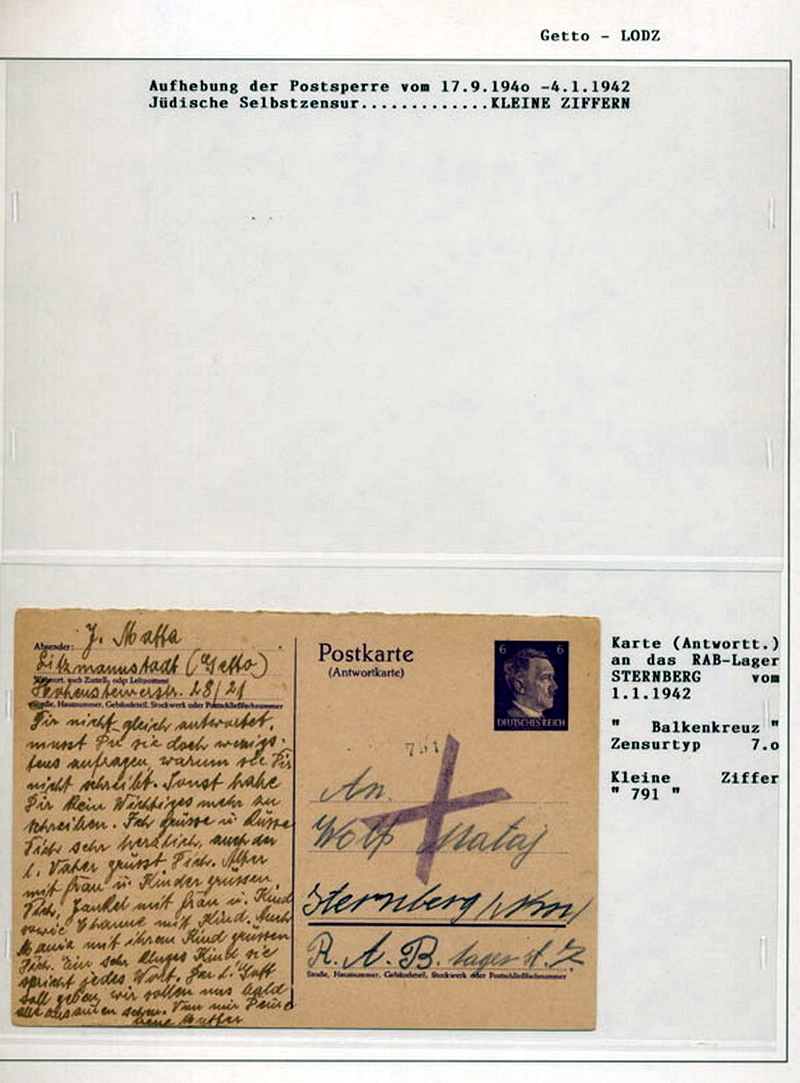 Getto - LODZ
Aufhebung der Postsperre vom 17.9.194o -4.1.1942
Jüdische Selbstzensur.............KLEINE ZIFFERN
J. Matta
Absender:
Litzmannstadt (Getto)
Wohnort, auch Zustell- oder Leitpostamt
Hohensteinerstr. 28/21
Straße, Hausnummer, Gebäudeteil, Stockwerk oder Postschließfachnummer
Dir nicht gleich antwortet,
musst Du sie doch wenigs-
tens anfragen, warum sie Dir
nicht schreibt. Sonst habe
Dir kein Wichtiges mehr zu
schreiben. Ich grüsse u. küsse
Dich sehr herzlich, auch der
l. Vater grüsst Dich. Alter
mit Frau u. Kinder grüssen
Dich, Jankel mit Frau u. Kind
sowie Channe mit Kind. Auch
Mania mit ihrem Kind grüssen
Dich. Ein sehr kluges Kind sie
spricht jedes Wort. Der l. Gott
soll geben, wir sollen uns bald
alle zusammen sehen. Von mir Deine
Mutter
Postkarte
(Antwortkarte)
6 6
DEUTSCHES REICH
791
An
Wolf Mataj
Sternberg (Nm)
R. A. B. Lager
Straße, Hausnummer, Gebäudeteil, Stockwerk oder Postschließfachnummer
Karte (Antwortt.)
an das RAB-Lager
STERNBERG vom
1.1.1942
" Balkenkreuz "
Zensurtyp 7.o
Kleine Ziffer
" 791 "